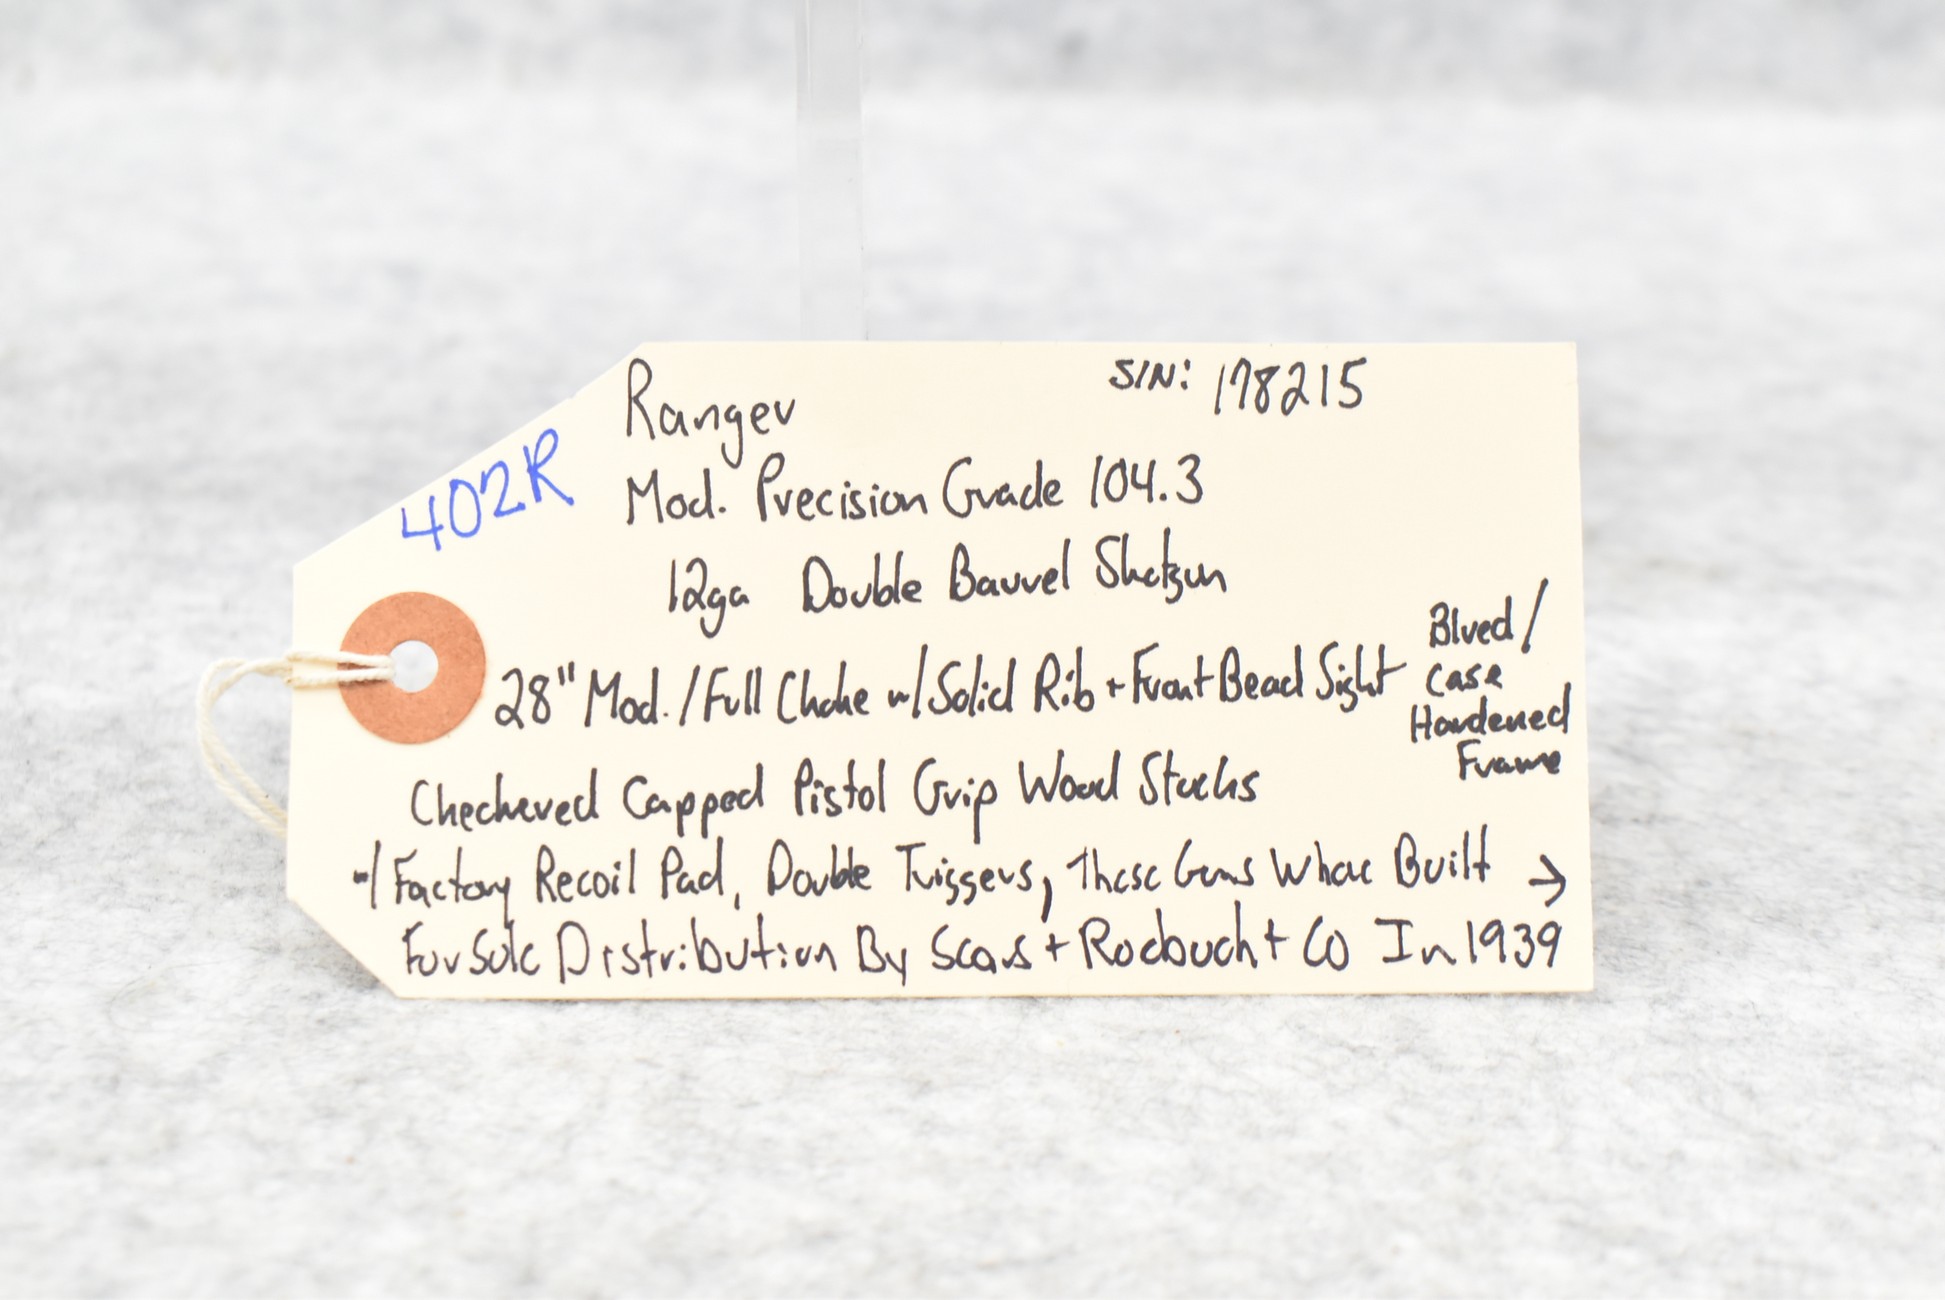 Ranger S/N: 178215
402R
Mod. Precision Grade 104.3
12ga Double Barrel Shotgun
28" Mod./Full Choke w/ Solid Rib + Front Bead Sight
Blued/
case
Hardened
Frame
Checkered Capped Pistol Grip Wood Stocks
w/ Factory Recoil Pad, Double Triggers, These Guns Whare Built →
For Sole Distribution By Sears + Roebucht + Co In 1939